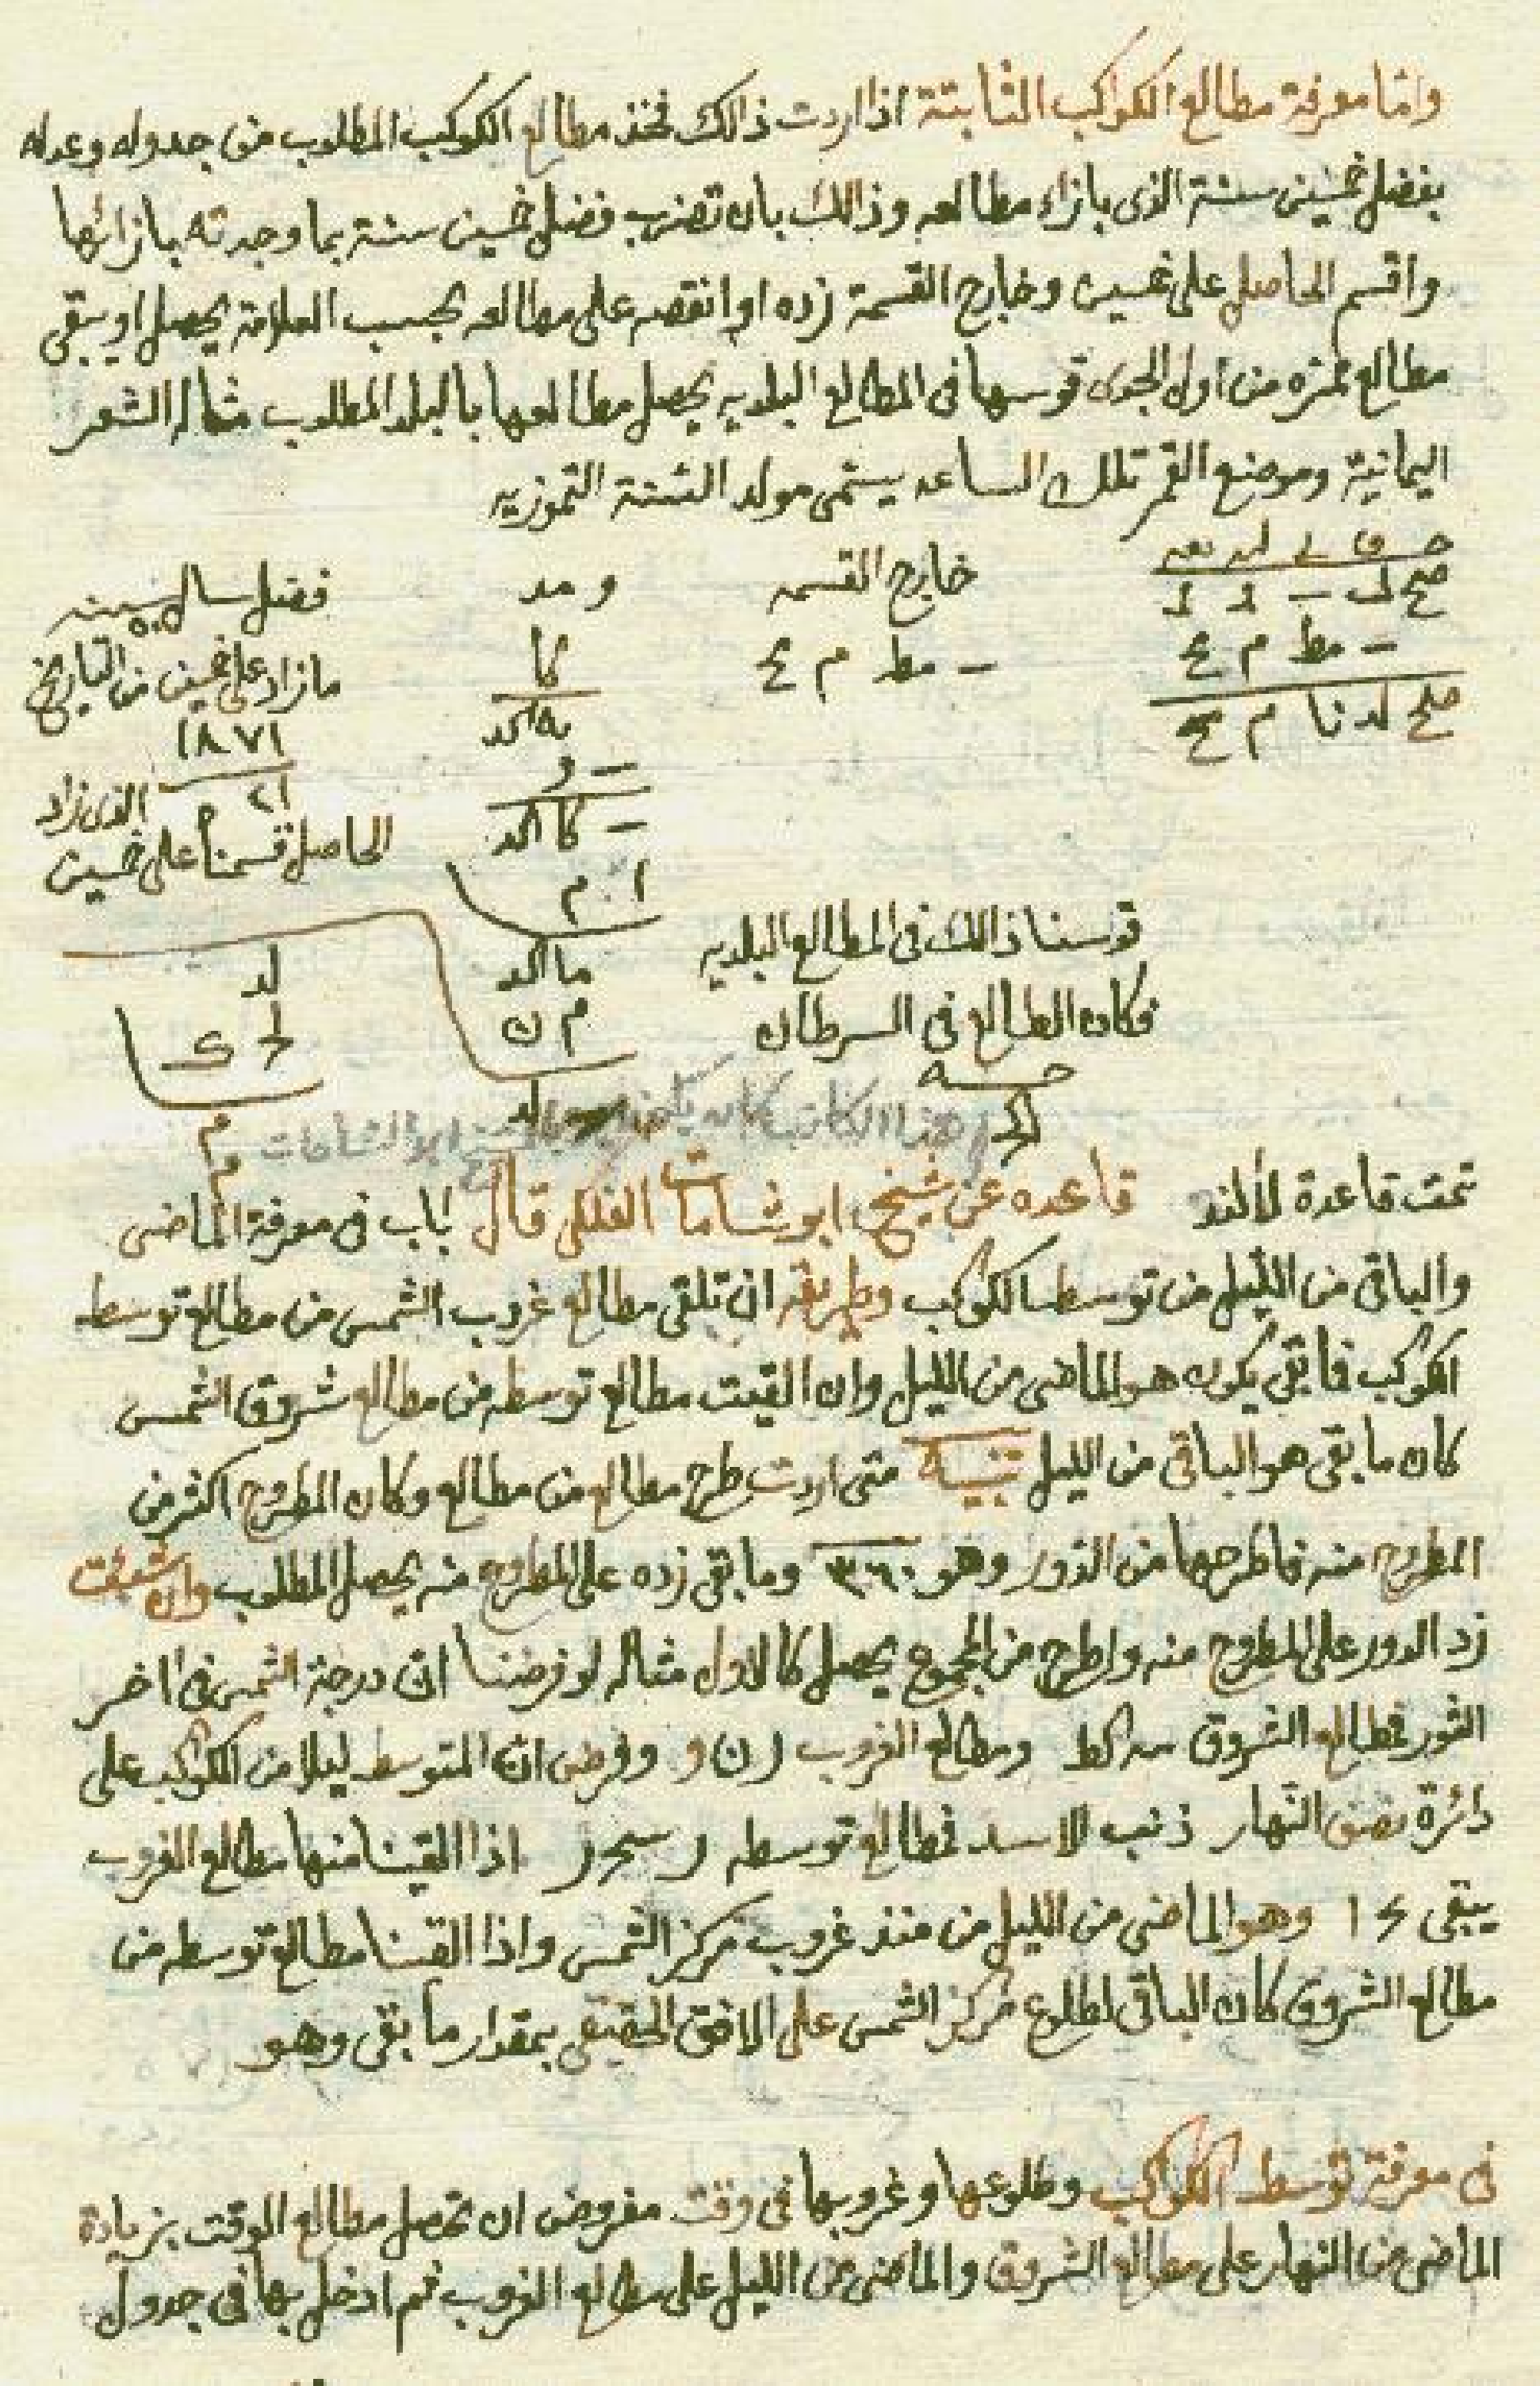 واما معرفة مطالع الكواكب الثابتة اذا اردت ذالك فخذ مطالع الكوكب المطلوب من جدوله وعدله
بفضل خمسين سنة الذى بازاء مطالعه وذالك بان تضرب فضل خمسين سنة بما وجدته بازائها
واقسم الحاصل على خمسين وخارج القسمة زده او انقصه على مطالعه بحسب العلامة يحصل او يبقى
مطالع ممره من اول الجدى قوسها فى المطالع البلديه يحصل مطالعها بالبلد المطلوب مثاله الشعر
اليمانية وموضع القمر تلك الساعه يسمى مولد السنة التموزيه
خارج القسمه
و مد
فضل سنه
مط م
كا
ما زاد على خمسين من التاريخ
١٨٧١
٢١ الذى زاد
الحاصل قسمناه على خمسين
قوسنا ذالك فى المطالع البلديه
فكان الطالع فى السرطان
هذا الكاتب كان
تمت قاعدة قاعده عن شيخ ابو شامات الفلكى قال باب فى معرفة الماضى
والباقى من الليل من توسط الكوكب وطريقه ان تلقى مطالع غروب الشمس من مطالع توسط
الكوكب فما بقى يكون هو الماضى من الليل وان القيت مطالع توسطه من مطالع شروق الشمس
كان ما بقى هو الباقى من الليل تنبيه متى اردت طرح مطالع من مطالع وكان المطروح اكثر من
المطروح منه فاطرحها من الدور وهو ٣٦٠ وما بقى زده على المطروح منه يحصل المطلوب وان شئت
زد الدور على المطروح منه واطرح من المجموع يحصل كالاول مثاله لو فرضنا ان درجة الشمس فى اخر
الثور فمطالع الشروق ومطالع الغروب ر ن و وفرض ان المتوسط ليلا من الكواكب على
دائرة نصف النهار ذنب الاسد فمطالع توسطه اذا القينا منها مطالع الغروب
يبقى وهو الماضى من الليل من منذ غروب مركز الشمس واذا القينا مطالع توسطه من
مطالع الشروق كان الباقى لطلوع مركز الشمس على الافق الحقيقى بمقدار ما بقى وهو
فى معرفة توسط الكواكب وطلوعها وغروبها فى وقت مفروض ان تحصل مطالع الوقت بزيادة
الماضى من النهار على مطالع الشروق والماضى من الليل على مطالع الغروب ثم ادخل بها فى جدول